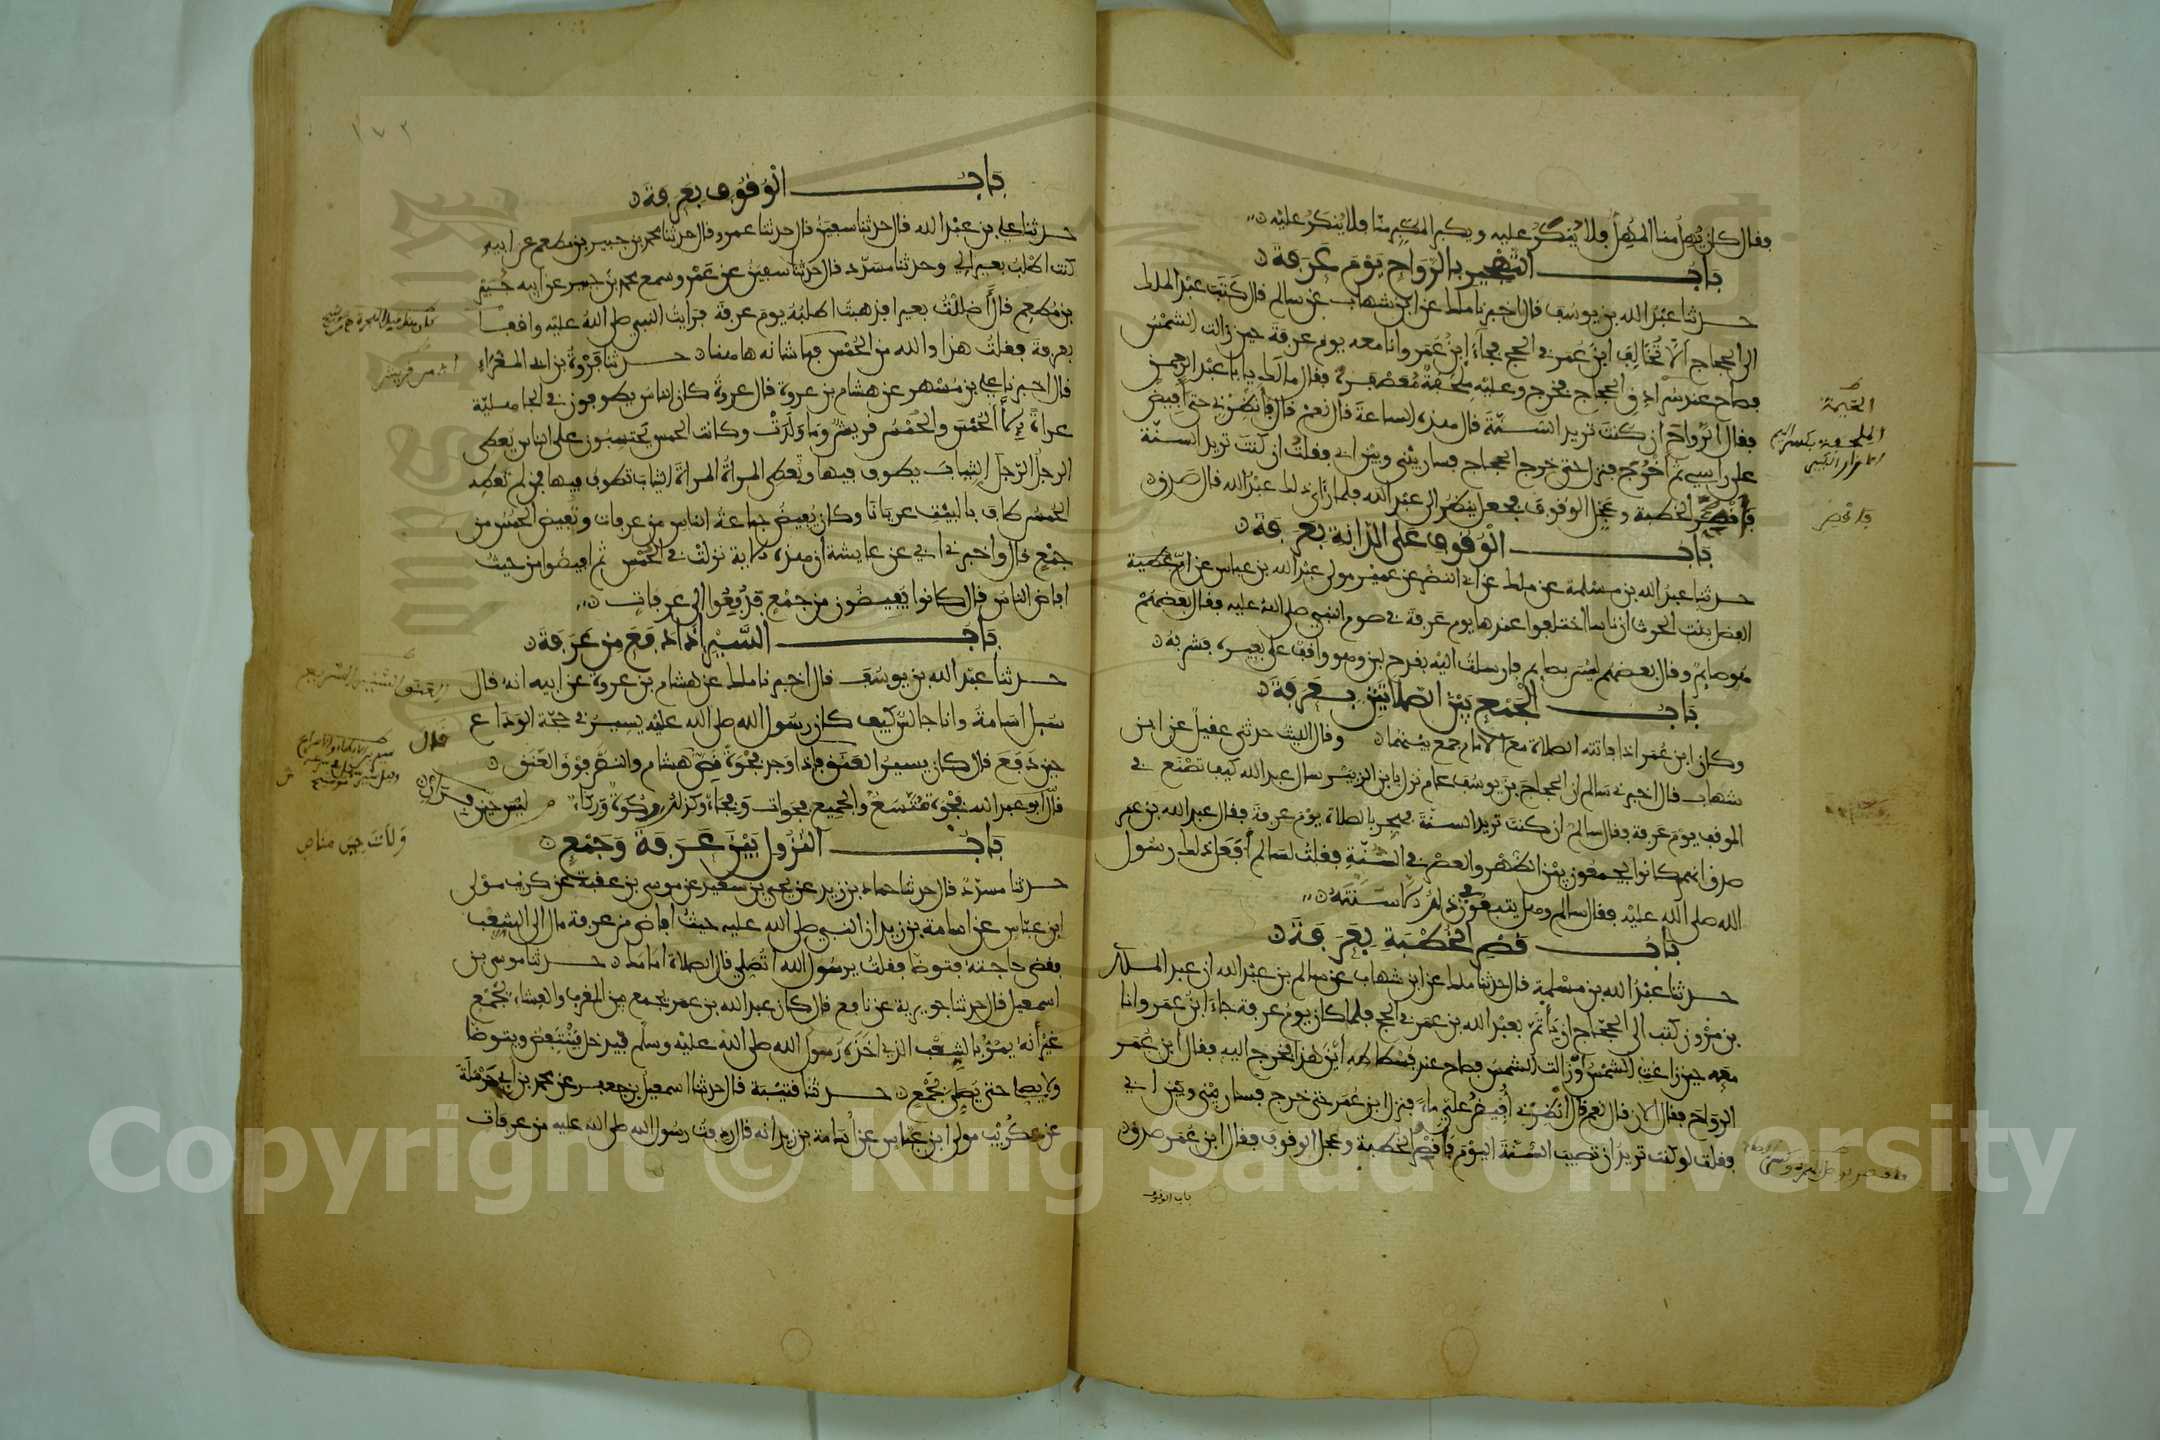 فقال كان يهل منا المهل فلا ينكر عليه ويكبر المكبر منا فلا ينكر عليه
باب التهجير بالرواح يوم عرفة
حدثنا عبد الله بن يوسف قال اخبرنا ملك عن ابن شهاب عن سالم قال كتب عبد الملك
الى الحجاج ألا تخالف ابن عمر في الحج فجاء ابن عمر وانا معه يوم عرفة حين زالت الشمس
فصاح عند سرادق الحجاج فخرج وعليه ملحفة معصفرة فقال ما لك يا با عبد الرحمن
فقال الرواح ان كنت تريد السنة قال هذه الساعة قال نعم قال فأنظرني حتى أفيض
على راسي ثم أخرج فنزل حتى خرج الحجاج فسار بيني وبين ابي فقلت ان كنت تريد السنة
فأقصر الخطبة وعجل الوقوف فجعل ينظر الى عبد الله فلما رأى ذلك عبد الله قال صدق
باب الوقوف على الدابة بعرفة
حدثنا عبد الله بن مسلمة عن ملك عن ابي النضر عن عمير مولى عبد الله بن عباس عن ام
الفضل بنت الحرث ان ناسا اختلفوا عندها يوم عرفة في صوم النبي صلى الله عليه فقال بعضهم
هو صايم وقال بعضهم ليس بصايم فارسلت اليه بقدح لبن وهو واقف على بعيره فشربه
باب الجمع بين الصلاتين بعرفة
وكان ابن عمر اذا فاتته الصلاة مع الامام جمع بينهما وقال الليث حدثني عقيل عن ابن
شهاب قال اخبرني سالم ان الحجاج بن يوسف عام نزل بابن الزبير سال عبد الله كيف تصنع في
الموقف يوم عرفة فقال سالم ان كنت تريد السنة فهجر بالصلاة يوم عرفة فقال عبد الله بن عمر
صدق انهم كانوا يجمعون بين الظهر والعصر في السنة فقلت لسالم أفعل ذلك رسول
الله صلى الله عليه فقال سالم وهل يتبعون في ذلك الا سنته
باب قصر الخطبة بعرفة
حدثنا عبد الله بن مسلمة قال حدثنا ملك عن ابن شهاب عن سالم بن عبد الله ان عبد الملك
بن مروان كتب الى الحجاج ان يأتم بعبد الله بن عمر في الحج فلما كان يوم عرفة جاء ابن عمر وانا
معه حين زاغت الشمس أو زالت الشمس فصاح عند فسطاطه اين هذا فخرج اليه فقال ابن عمر
الرواح فقال الان قال نعم قال أنظرني أفيض علي ماء فنزل ابن عمر حتى خرج فسار بيني وبين ابي
فقلت لو كنت تريد ان تصيب السنة اليوم فأقصر الخطبة وعجل الوقوف فقال ابن عمر صدق
باب الوقوف
الملحفة بكسر الميم
١٧٢
باب الوقوف بعرفة
حدثنا علي بن عبد الله قال حدثنا سفين قال حدثنا عمرو قال حدثنا محمد بن جبير بن مطعم عن ابيه
كنت اطلب بعيرا لي وحدثنا مسدد قال حدثنا سفين عن عمرو سمع محمد بن جبير عن ابيه جبير
بن مطعم قال أضللت بعيرا فذهبت اطلبه يوم عرفة فرايت النبي صلى الله عليه واقفا
بعرفة فقلت هذا والله من الحمس فما شانه هاهنا حدثنا فروة بن ابي المغراء
قال اخبرنا علي بن مسهر عن هشام بن عروة قال عروة كان الناس يطوفون في الجاهلية
عراة إلا الحمس والحمس قريش وما ولدت وكانت الحمس يحتسبون على الناس يعطي
الرجل الرجل الثياب يطوف فيها وتعطي المراة المراة الثياب تطوف فيها فمن لم تعطه
الحمس طاف بالبيت عريانا وكان يفيض جماعة الناس من عرفات وتفيض الحمس من
جمع قال واخبرني ابي عن عايشة ان هذه الاية نزلت في الحمس ثم افيضوا من حيث
افاض الناس قال كانوا يفيضون من جمع فدفعوا الى عرفات
باب السير اذا دفع من عرفة
حدثنا عبد الله بن يوسف قال اخبرنا ملك عن هشام بن عروة عن ابيه انه قال
سيل اسامة وانا جالس كيف كان رسول الله صلى الله عليه يسير في حجة الوداع
حين دفع قال كان يسير العنق فاذا وجد فجوة نص قال هشام والنص فوق العنق
قال ابو عبد الله فجوة متسع والجميع فجوات وفجاء وكذلك ركوة وركاء مناص ليس حين فرار
باب النزول بين عرفة وجمع
حدثنا مسدد قال حدثنا حماد بن زيد عن يحيى بن سعيد عن موسى بن عقبة عن كريب مولى
ابن عباس عن اسامة بن زيد ان النبي صلى الله عليه حيث افاض من عرفة مال الى الشعب
فقضى حاجته فتوضا فقلت يرسول الله اتصلي قال الصلاة امامك حدثنا موسى بن
اسمعيل قال حدثنا جويرية عن نافع قال كان عبد الله بن عمر يجمع بين المغرب والعشاء بجمع
غير أنه يمر بالشعب الذي اخذه رسول الله صلى الله عليه وسلم فيدخل فينتفض ويتوضا
ولا يصلي حتى يصلي بجمع حدثنا قتيبة قال حدثنا اسمعيل بن جعفر عن محمد بن ابي حرملة
عن كريب مولى ابن عباس عن اسامة بن زيد انه قال ردفت رسول الله صلى الله عليه من عرفات
ولات حين مناص
Copyright © King Saud University